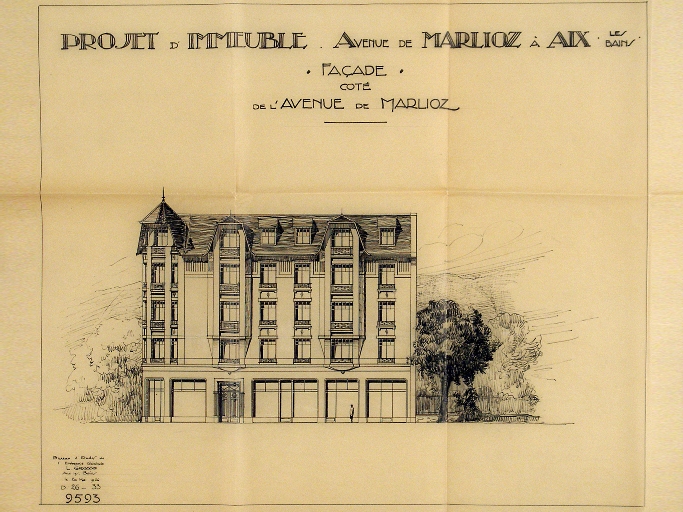 PROJET D' IMMEUBLE . AVENUE DE MARLIOZ À AIX · LES BAINS ·
· FAÇADE ·
COTÉ
DE L'AVENUE DE MARLIOZ
D. 26 - 33
9593